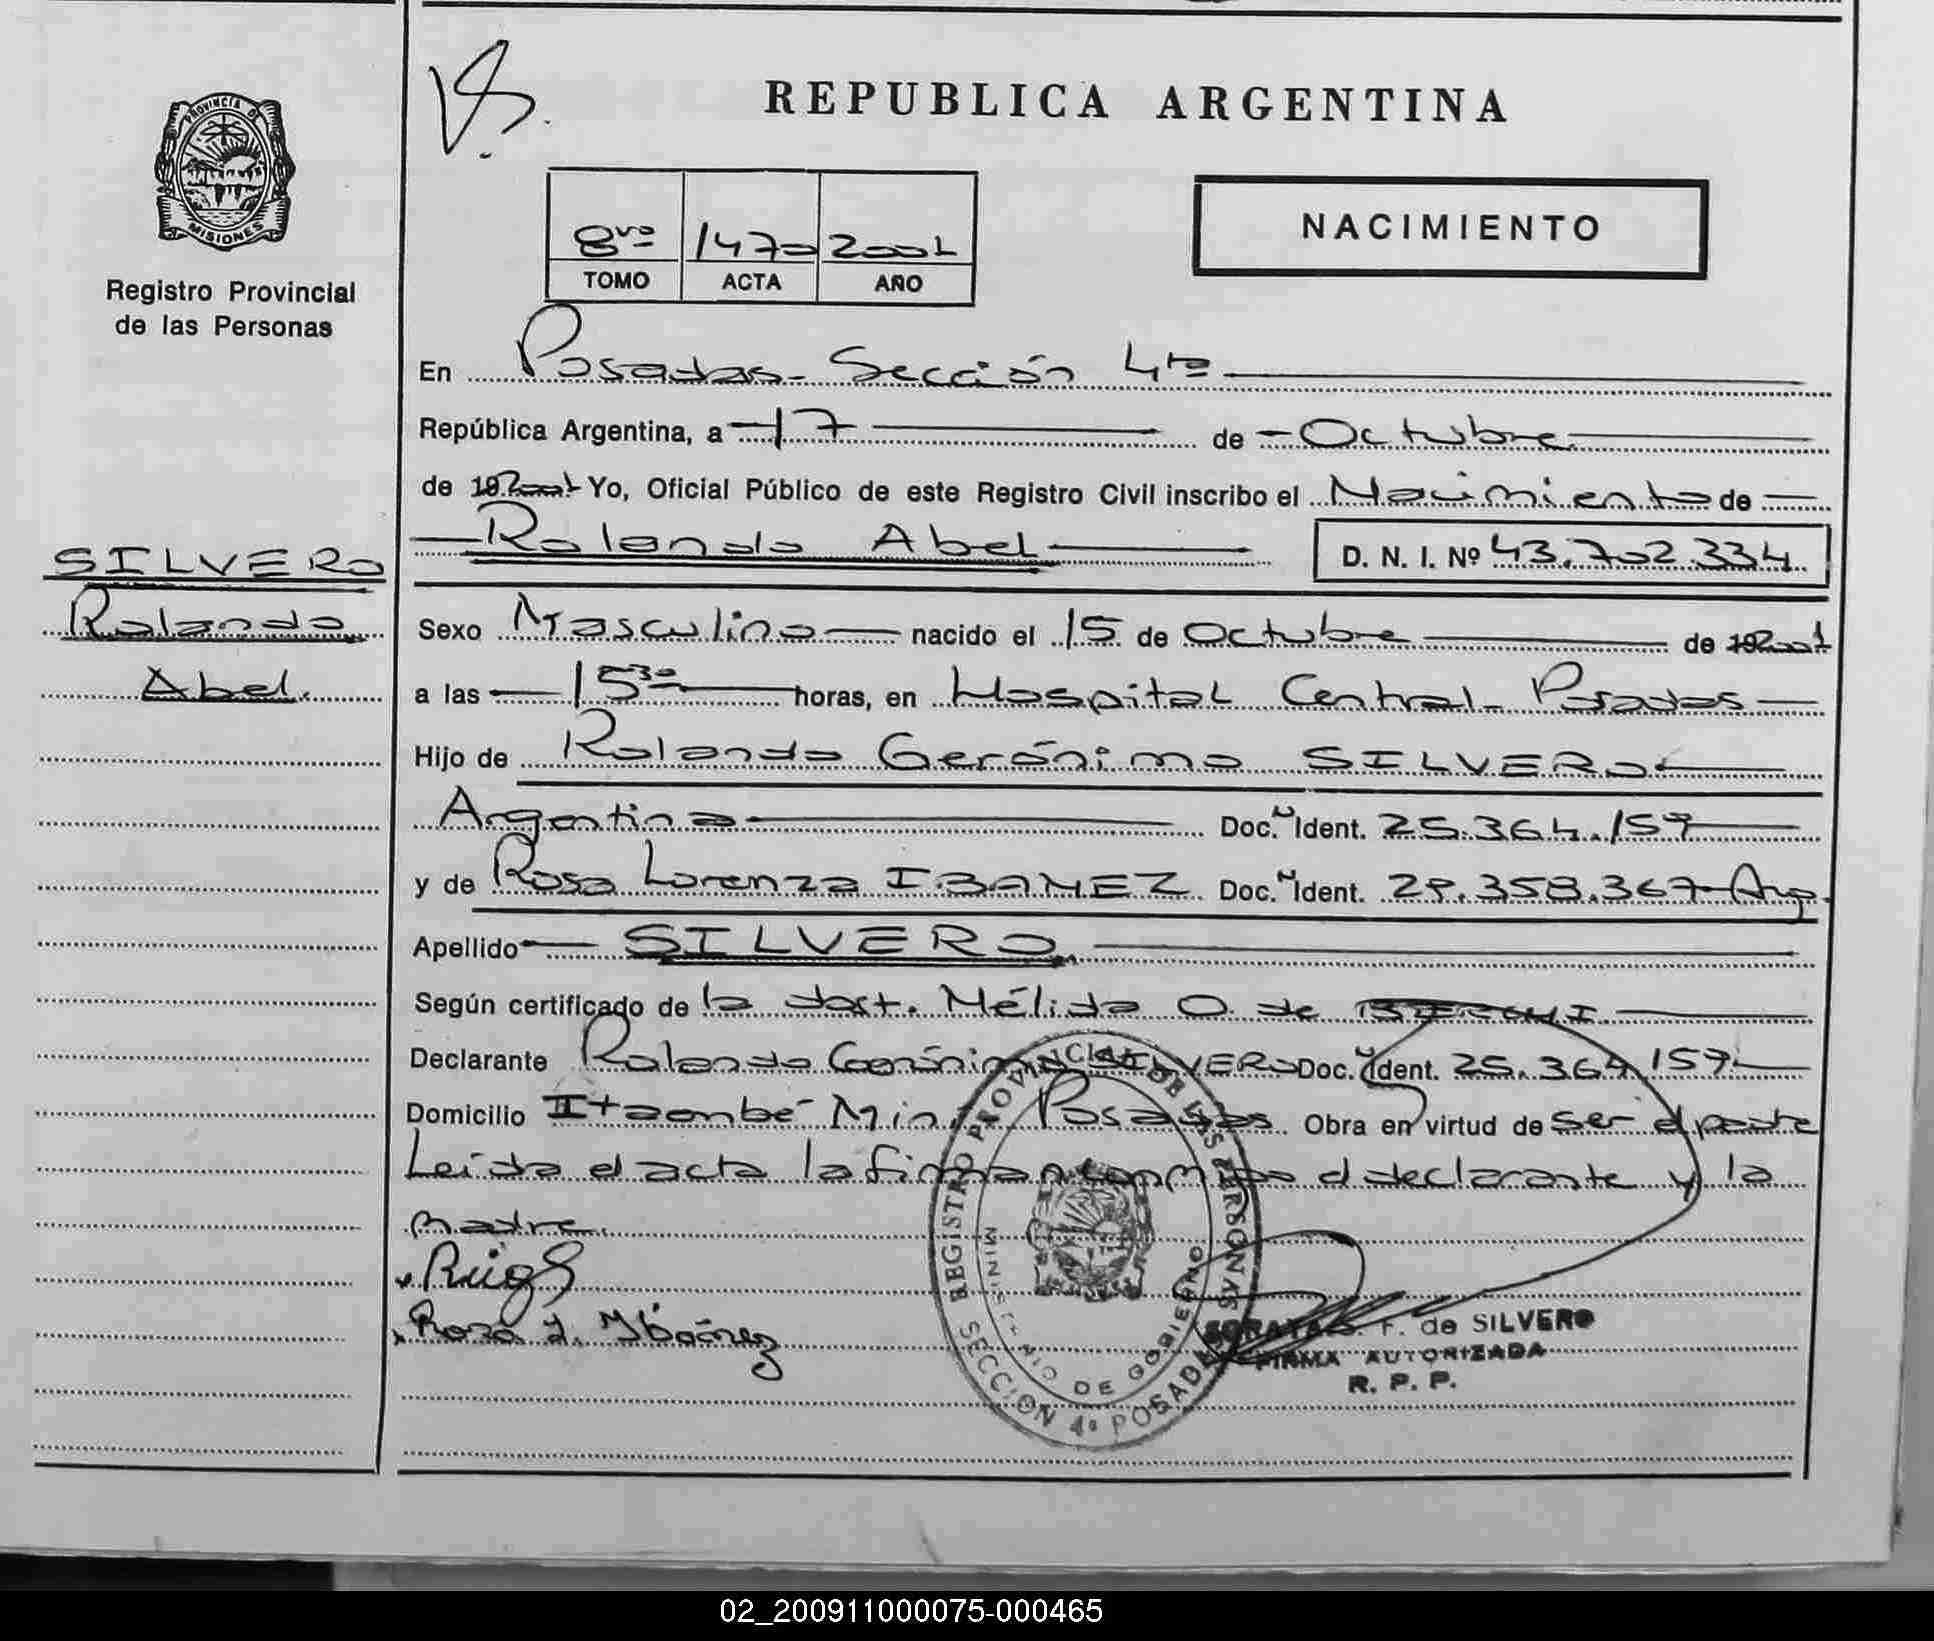 REPUBLICA ARGENTINA
PROVINCIA DE
MISIONES
Registro Provincial
de las Personas
8vo 1470 2001
TOMO ACTA AÑO
NACIMIENTO
En Posadas - Sección 4ta
República Argentina, a 17 de Octubre
de 19 2001 Yo, Oficial Público de este Registro Civil inscribo el Nacimiento de
Rolando Abel D. N. I. Nº 43.702.334
SILVERO
Rolando
Abel.
Sexo Masculino nacido el 15 de Octubre de 19 2001
a las 15 30 horas, en Hospital Central - Posadas
Hijo de Rolando Gerónimo SILVERO
Argentina Doc. N Ident. 25.364.159
y de Rosa Lorenza IBAÑEZ Doc. N Ident. 29.358.367 - Arg.
Apellido SILVERO.
Según certificado de la dost. Nélida O. de
Declarante Rolando Gerónimo SILVERO Doc. N Ident. 25.364.159
Domicilio Itaembé Miní - Posadas Obra en virtud de ser el padre
Leida el acta la firman conmigo el declarante y la
madre.
Rosa L. Ibañez
REGISTRO PROVINCIAL DE LAS PERSONAS
MINISTERIO DE GOBIERNO
SECCION 4ª POSADAS
SORAYA S. F. de SILVERO
FIRMA AUTORIZADA
R. P. P.
02_200911000075-000465